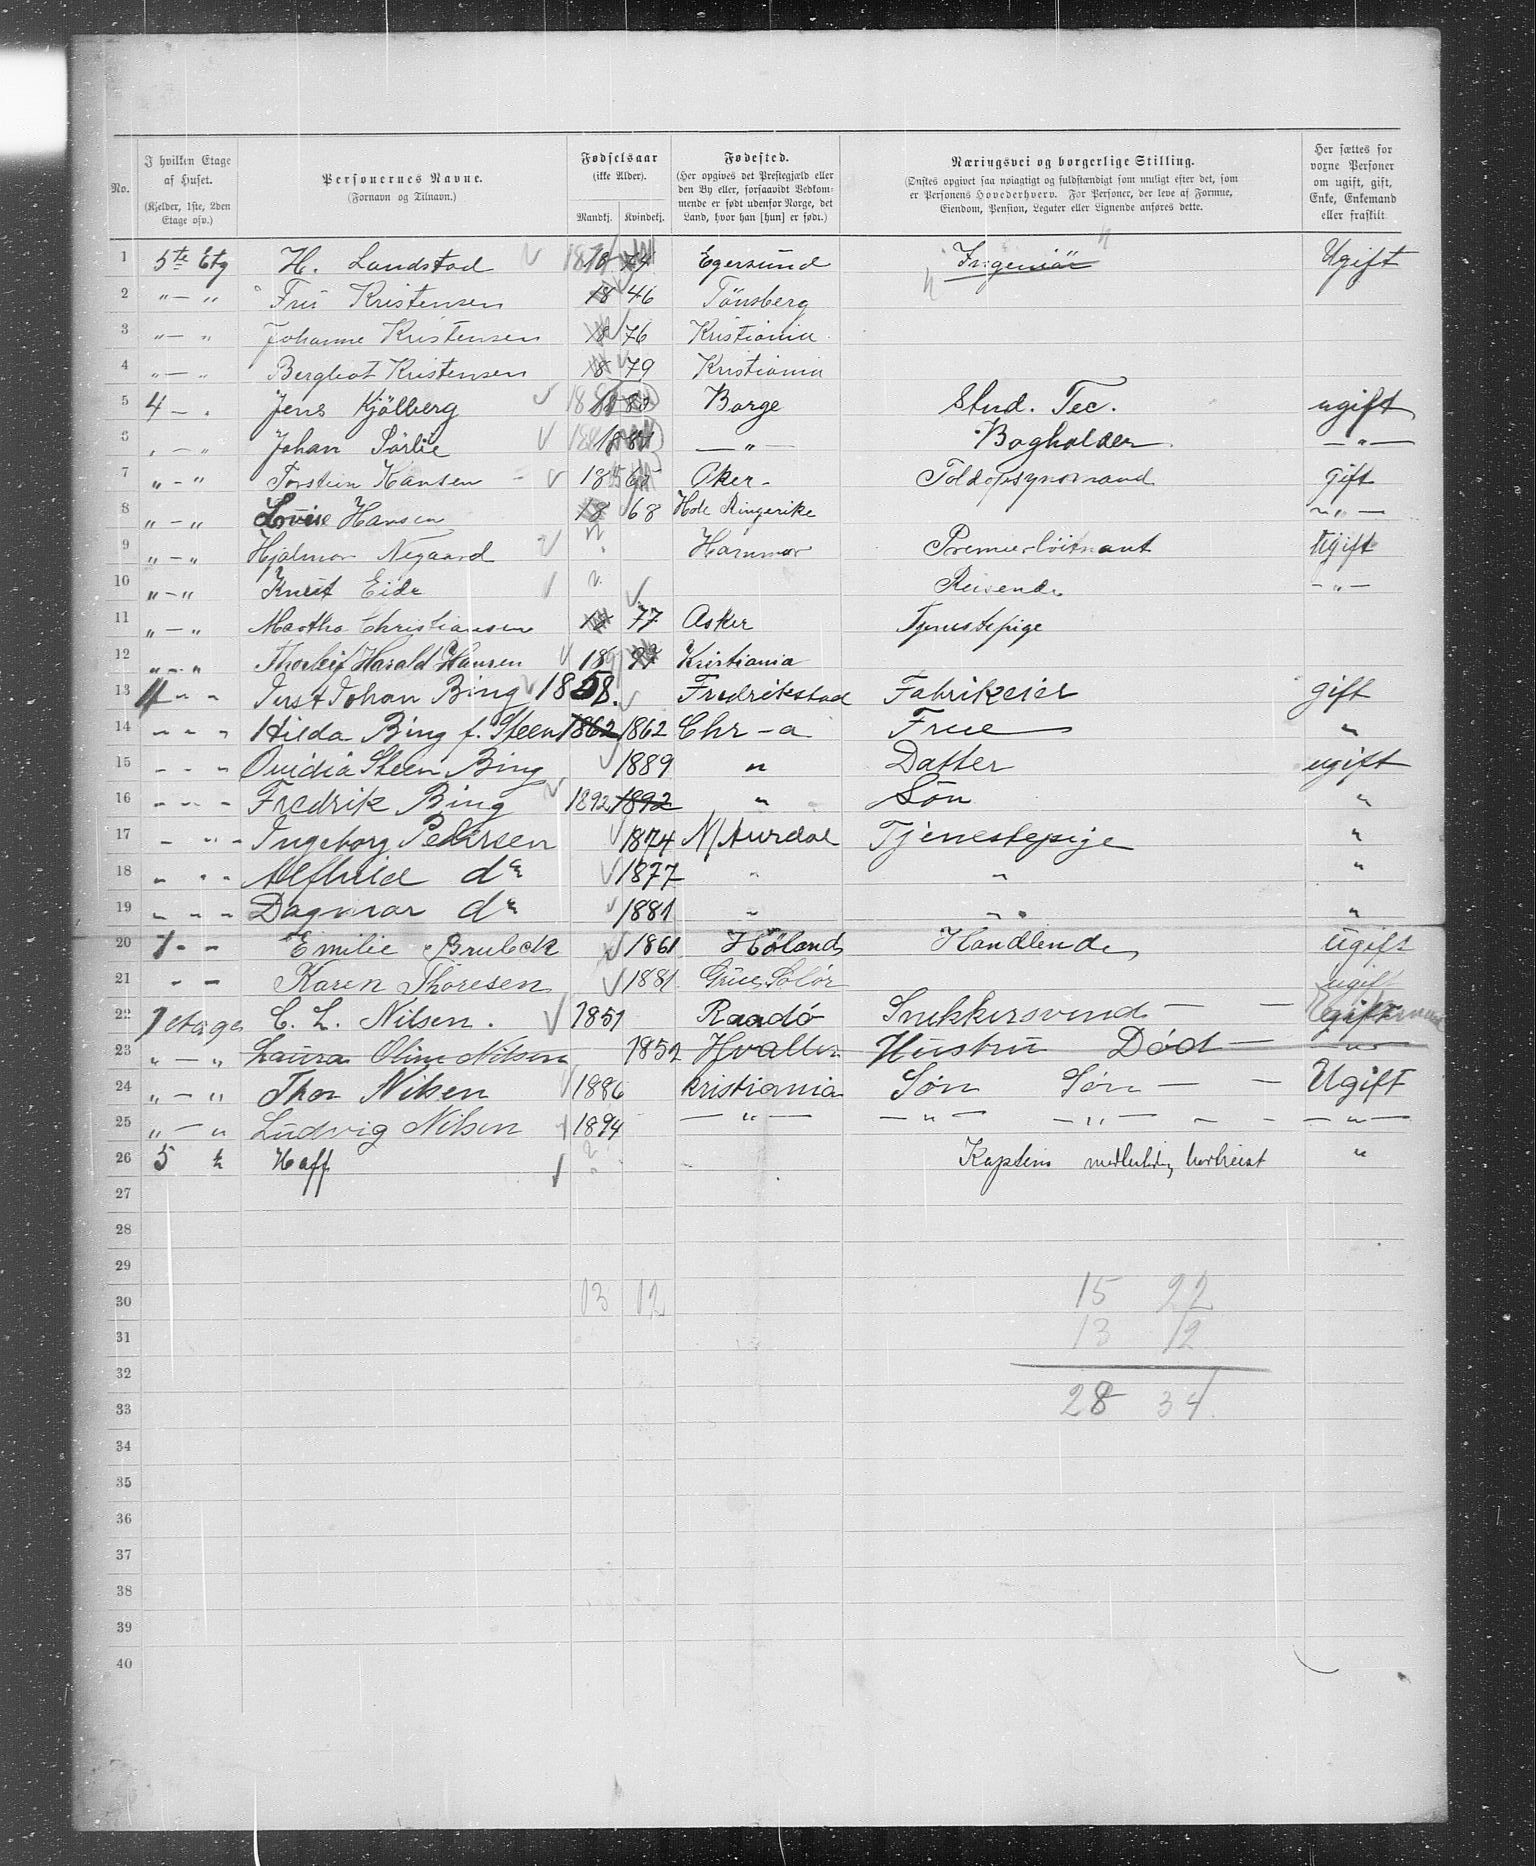 No. | I hvilken Etage af Huset. (Kjelder, 1ste, 2den Etage osv.) | Personernes Navne. (Fornavn og Tilnavn.) | Fødselsaar (ikke Alder). Mandkj. Kvindekj. | Fødested. (Her opgives det Prestegjæld eller den By eller, forsaavidt Vedkommende er født udenfor Norge, det Land, hvor han [hun] er født.) | Næringsvei og borgerlige Stilling. (Ønskes opgivet saa nøiagtigt og fuldstændigt som muligt efter det, som er Personens Hovederhverv. For Personer, der leve af Formue, Eiendom, Pension, Legater eller Lignende anføres dette. | Her sættes for voxne Personer om ugift, gift, Enke, Enkemand eller fraskilt
1 5te Etg H. Landstad 18 74 Egersund Ingeniör Ugift
2 " — " Fru Kristensen 18 46 Tönsberg
3 " — " Johanne Kristensen 18 76 Kristiania
4 " — " Bergliot Kristensen 18 79 Kristiania
5 4 — " Jens Kjölberg 18 80 Borge Stud. Tec. ugift
6 " — " Johan Sörlie 18 81 — " — Bogholder — " —
7 " — " Torstein Hansen 18 65 Aker Toldopsynsmand gift
8 " — " Lovise Hansen 18 68 Hole Ringerike — " —
9 " — " Hjalmar Negaard Hammar Premierlöitnant Ugift
10 " — " Knut Eide Reisende — " —
11 " — " Martha Christiansen 18 77 Asker Tjenestepige
12 " — " Thorleif Harald Hansen 18 97 Kristiania
13 4 - - Just Johan Bing 1858. Fredrikstad Fabrikeier gift
14 - - - Hilda Bing f. Steen 1862 1862 Chr-a Frue "
15 - - - Ovidia Steen Bing 1889 " Datter ugift
16 - - - Fredrik Bing 1892 1892 " Søn "
17 - " - Ingeborg Pedersen 1874 N/Aurdal Tjenestepige "
18 - - - Alfhild do 1877 " " "
19 - - - Dagmar do 1881 " " "
20 1 - - Emilie Brubeck 1861 Høland Handlende Ugift
21 - - Karen Thoresen 1881 Grue, Solör ugift
22 1 etage C. L. Nilsen. 1851 Raadö Snekkersvend — — gift
23 " — " Laura Oline Nilsen 1852 Hvaller Hustru Död — — " —
24 " — " Thor Nilsen 1886 Kristiania Sön Sön — — Ugift
25 " — " Ludvig Nilsen 1894 — " — — " — — " — - - — " —
26 5 Haff Kaptein bortreist "
27
28
29
30 13 12 15 22
31 13 12
32
33 28 34
34
35
36
37
38
39
40